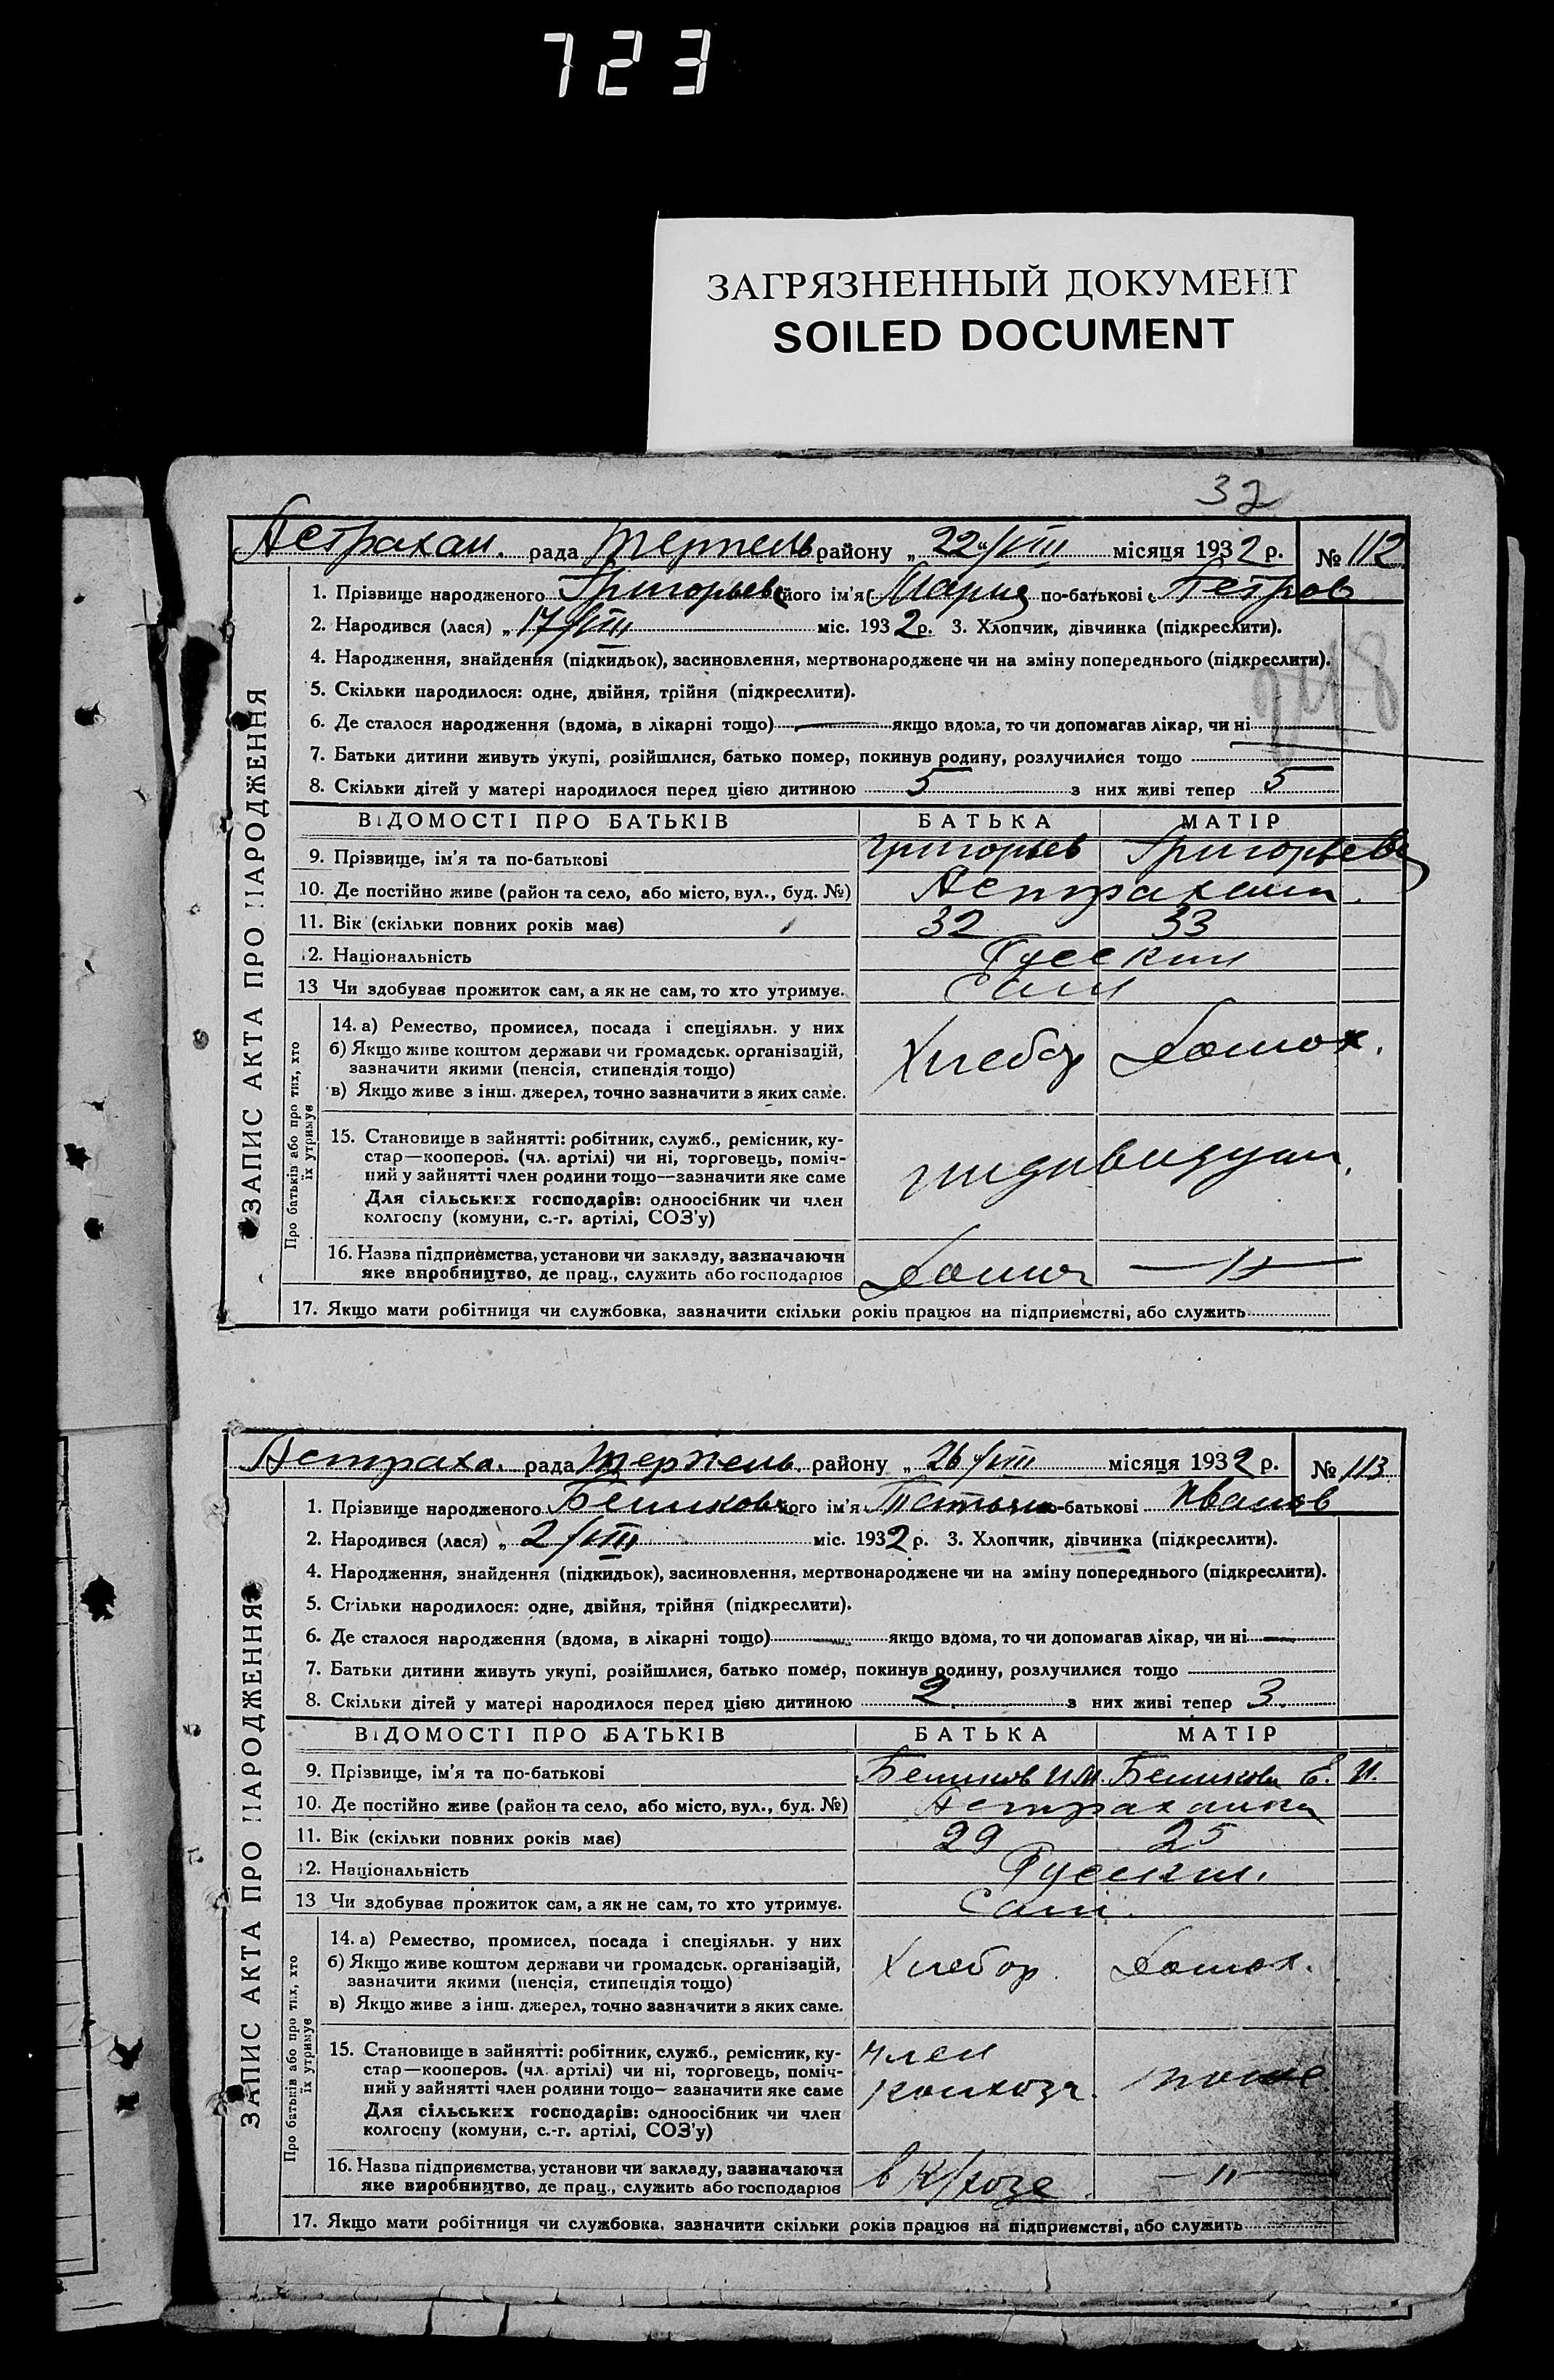 723
ЗАГРЯЗНЕННЫЙ ДОКУМЕНТ
SOILED DOCUMENT
32
Астрахан. рада Терпель району „ 22 "/VIII місяця 1932 р. № 112
ЗАПИС АКТА ПРО НАРОДЖЕННЯ
1. Прізвище народженого Григорьева його ім'я Мария по-батькові Петров
2. Народився (лася) „ 17/VIII міс. 1932 р. 3. Хлопчик, дівчинка (підкреслити).
4. Народження, знайдення (підкидьок), засиновлення, мертвонароджене чи на зміну попереднього (підкреслити).
5. Скільки народилося: одне, двійня, трійня (підкреслити).
6. Де сталося народження (вдома, в лікарні тощо) — якщо вдома, то чи допомагав лікар, чи ні
7. Батьки дитини живуть укупі, розійшлися, батько помер, покинув родину, розлучилися тощо
8. Скільки дітей у матері народилося перед цією дитиною 5 з них живі тепер 5
ВІДОМОСТІ ПРО БАТЬКІВ БАТЬКА МАТІР
9. Прізвище, ім'я та по-батькові Григорьев Григорьева
10. Де постійно живе (район та село, або місто, вул., буд. №)
11. Вік (скільки повних років має) 32 33
12. Національність Русские
13 Чи здобуває прожиток сам, а як не сам, то хто утримує. Сами
Про батьків або про тих, хто їх утримує
14. а) Ремество, промисел, посада і спеціяльн. у них
б) Якщо живе коштом держави чи громадськ. організацій,
зазначити якими (пенсія, стипендія тощо)
в) Якщо живе з інш. джерел, точно зазначити з яких саме.
Хлебор Домох.
15. Становище в зайнятті: робітник, служб., ремісник, ку-
стар—кооперов. (чл. артілі) чи ні, торговець, поміч-
ний у зайнятті член родини тощо—зазначити яке саме
Для сільських господарів: одноосібник чи член
колгоспу (комуни, с.-г. артілі, СОЗ'у)
индивидуал.
16. Назва підприємства, установи чи закладу, зазначаючи
яке виробництво, де прац., служить або господарює
—"—
17. Якщо мати робітниця чи службовка, зазначити скільки років працює на підприємстві, або служить
Астраха. рада Терпель. району „ 26 "/VIII місяця 1932 р. № 113
ЗАПИС АКТА ПРО НАРОДЖЕННЯ
1. Прізвище народженого його ім'я Татьяна по-батькові Иванов
2. Народився (лася) „ 2/VIII міс. 1932 р. 3. Хлопчик, дівчинка (підкреслити).
4. Народження, знайдення (підкидьок), засиновлення, мертвонароджене чи на зміну попереднього (підкреслити).
5. Скільки народилося: одне, двійня, трійня (підкреслити).
6. Де сталося народження (вдома, в лікарні тощо) — якщо вдома, то чи допомагав лікар, чи ні —
7. Батьки дитини живуть укупі, розійшлися, батько помер, покинув родину, розлучилися тощо
8. Скільки дітей у матері народилося перед цією дитиною 2 з них живі тепер 3
ВІДОМОСТІ ПРО БАТЬКІВ БАТЬКА МАТІР
9. Прізвище, ім'я та по-батькові И.М. Е. И.
10. Де постійно живе (район та село, або місто, вул., буд. №) Астраханка
11. Вік (скільки повних років має) 29 25
12. Національність Русские.
13 Чи здобуває прожиток сам, а як не сам, то хто утримує. Сами.
Про батьків або про тих, хто їх утримує
14. а) Ремество, промисел, посада і спеціяльн. у них
б) Якщо живе коштом держави чи громадськ. організацій,
зазначити якими (пенсія, стипендія тощо)
в) Якщо живе з інш. джерел, точно зазначити з яких саме.
Хлебор. Домох.
15. Становище в зайнятті: робітник, служб., ремісник, ку-
стар—кооперов. (чл. артілі) чи ні, торговець, поміч-
ний у зайнятті член родини тощо—зазначити яке саме
Для сільських господарів: одноосібник чи член
колгоспу (комуни, с.-г. артілі, СОЗ'у)
член
колхоза. тоже
16. Назва підприємства, установи чи закладу, зазначаючи
яке виробництво, де прац., служить або господарює
в к/хозе. —"—
17. Якщо мати робітниця чи службовка, зазначити скільки років працює на підприємстві, або служить